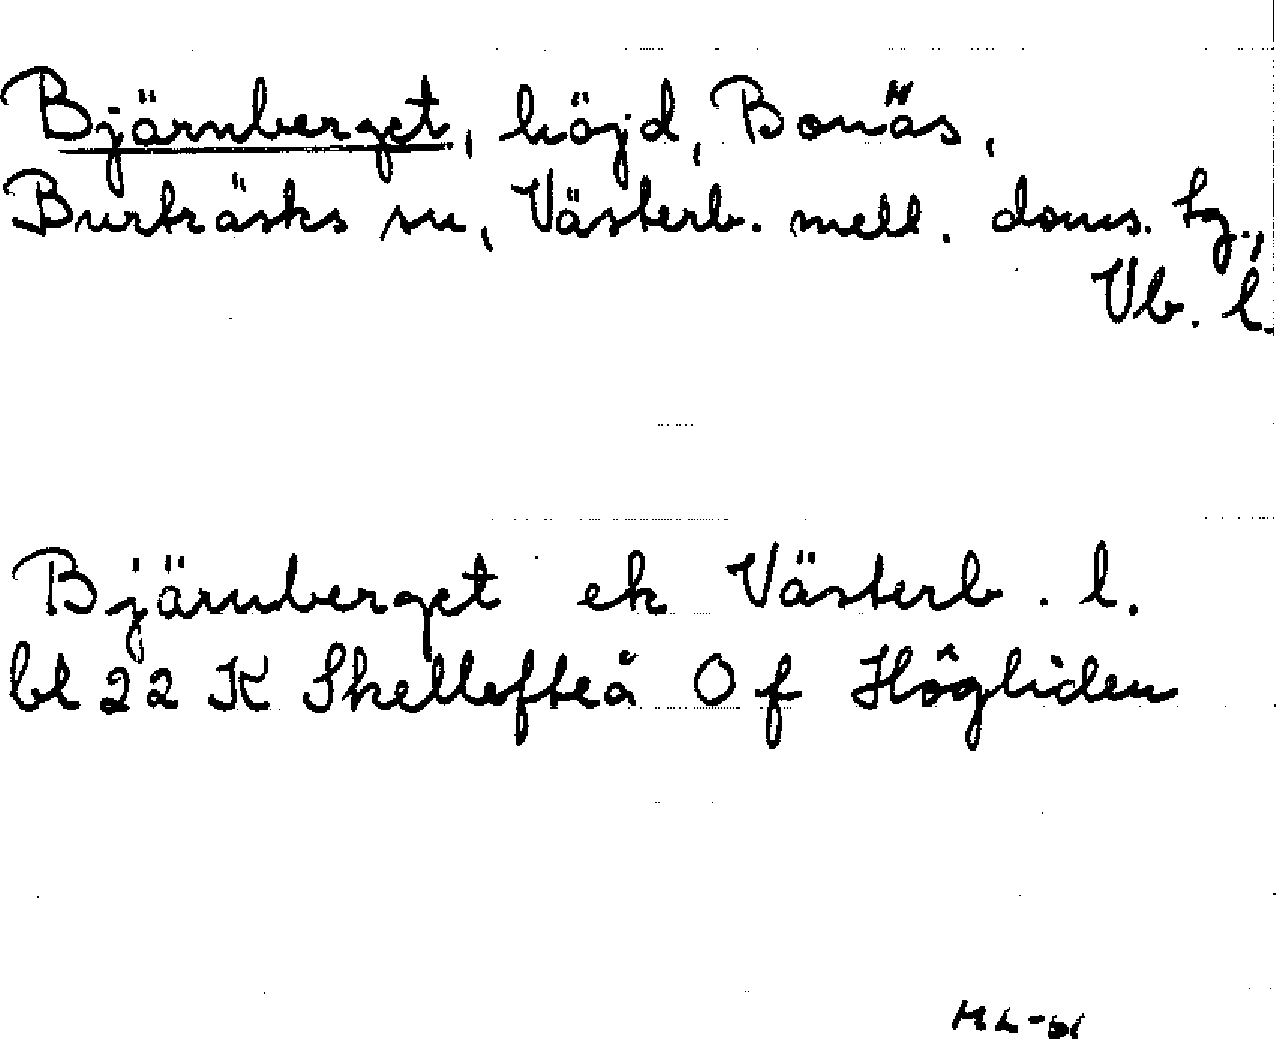 Bjärnberget, höjd, Bonäs,
Burträsks sn, Västerb. mell. doms. tg.,
Vb. l.
Bjärnberget ek Västerb. l.
bl 22 K Skellefteå O f Högliden